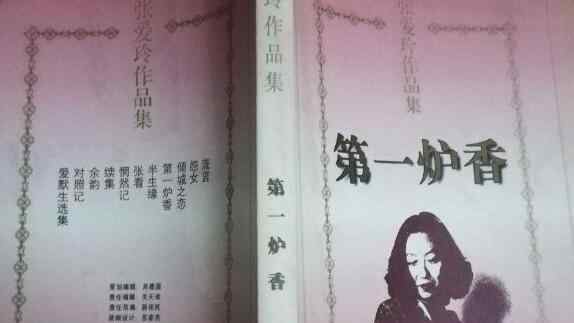 张爱玲作品集
流言
怨女
倾城之恋
第一炉香
半生缘
张看
惘然记
续集
余韵
对照记
爱默生选集
责任编辑
玲作品集
第一炉香
张爱玲作品集
第一炉香